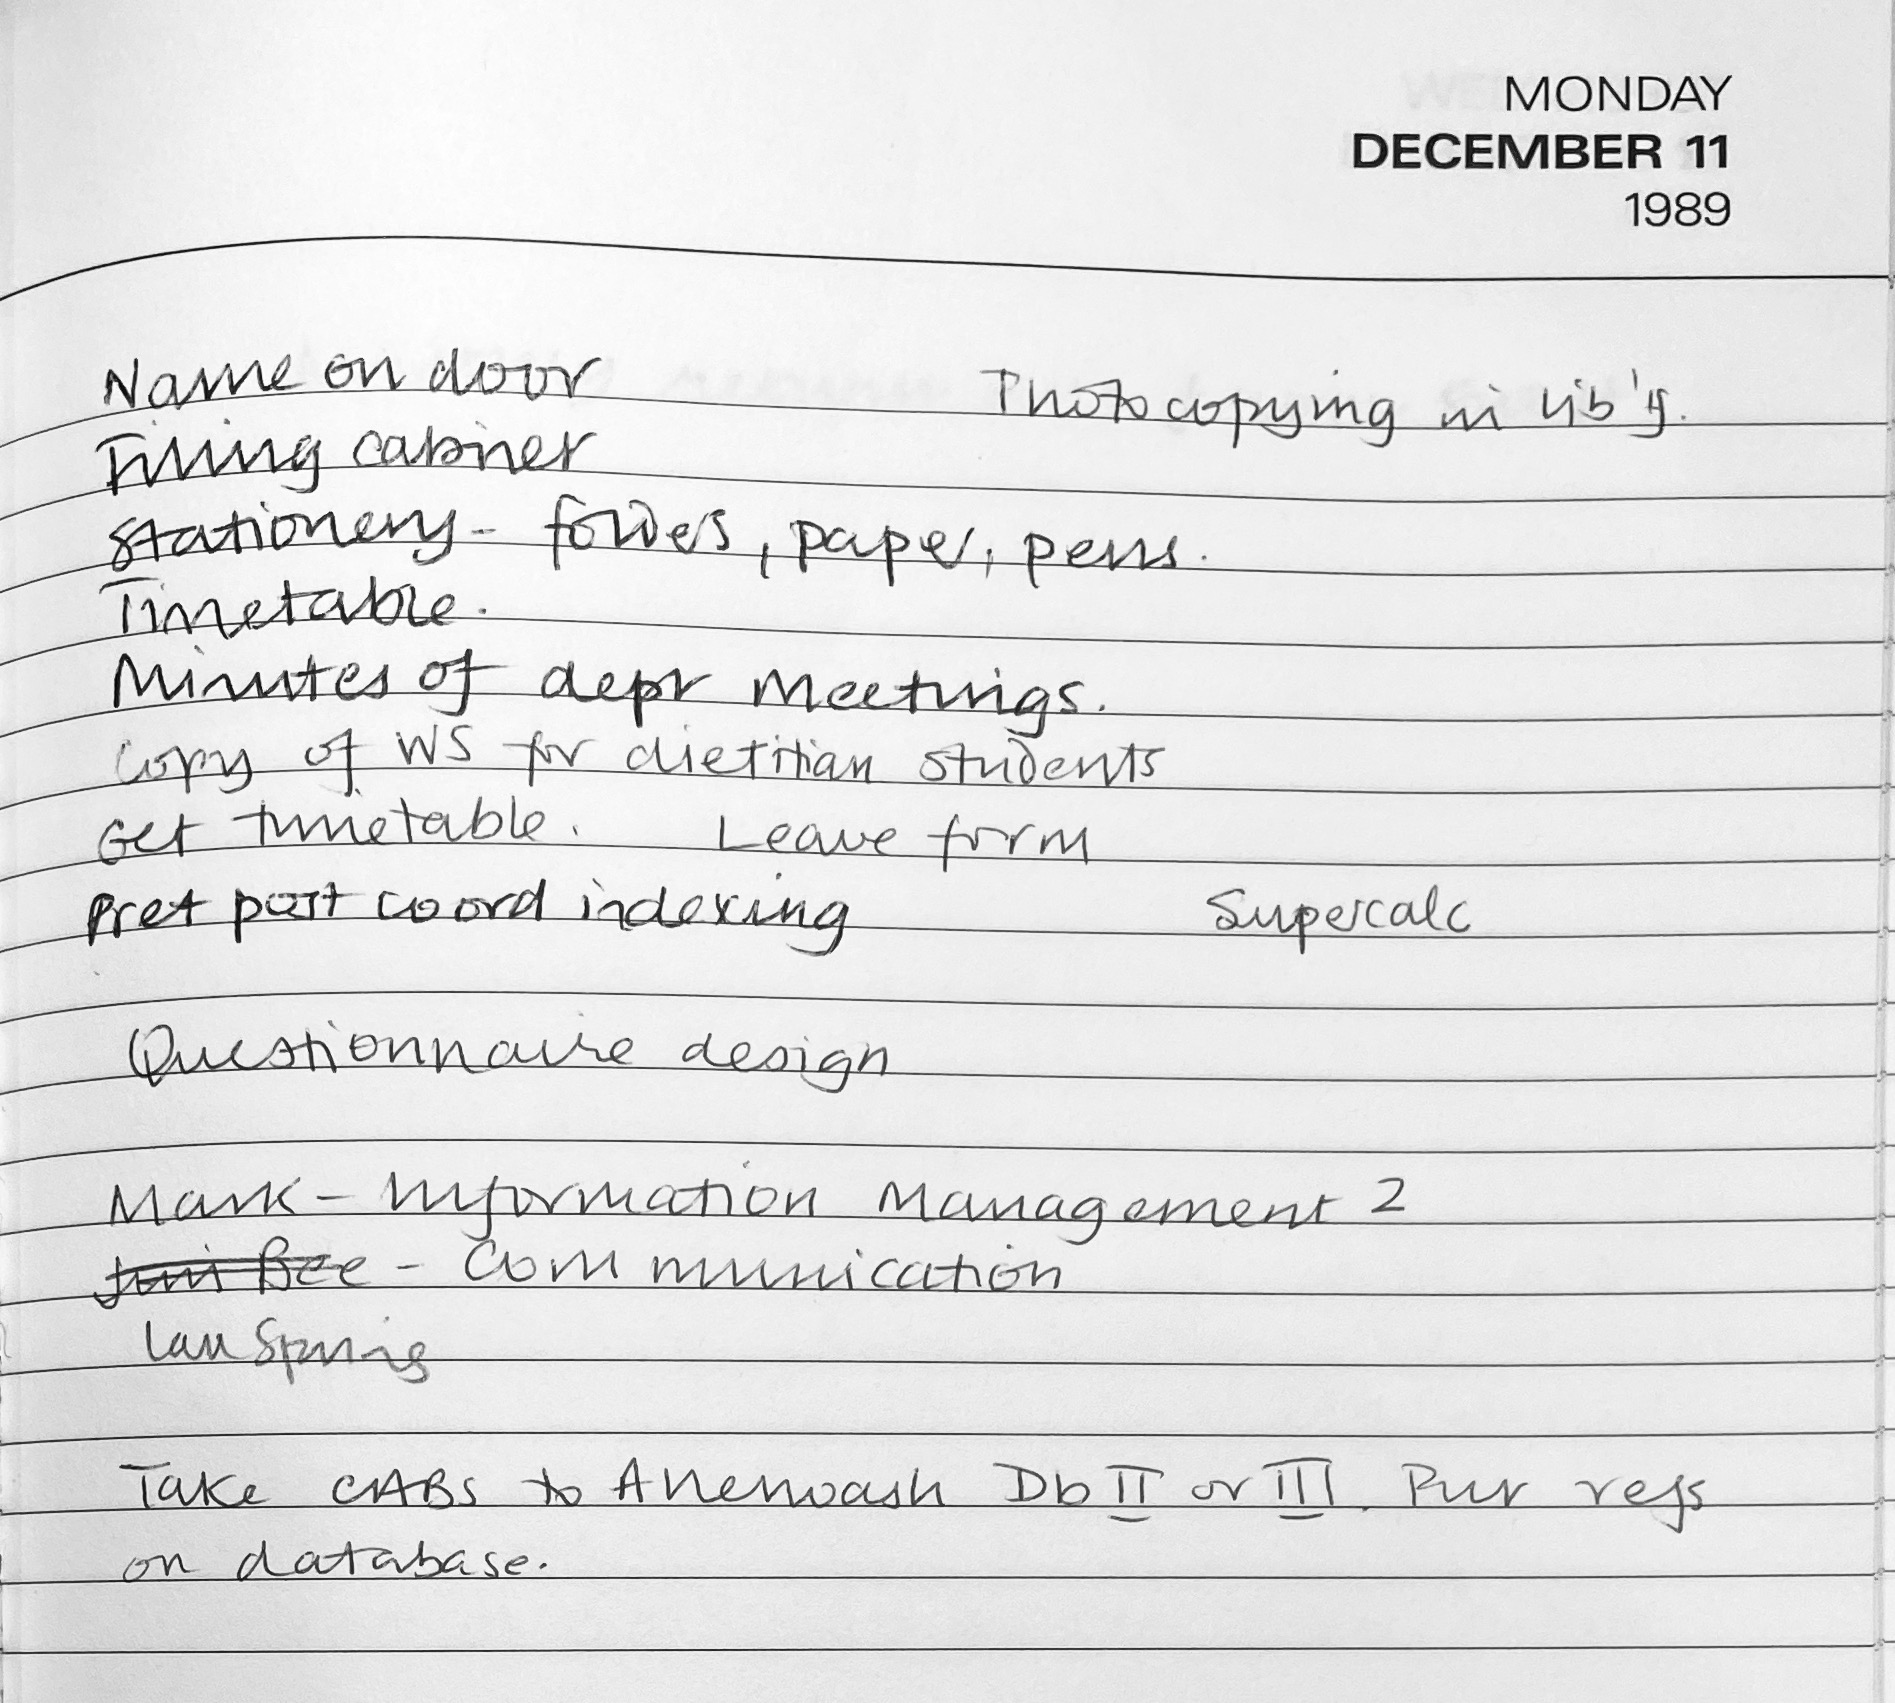 MONDAY
DECEMBER 11
1989
Name on door Photocopying in lib'y.
Filing cabinet
Stationery - folders, paper, pens.
Timetable.
Minutes of dept meetings.
Copy of WS for dietitian students
Get timetable. Leave form
Pre + post coord indexing Supercalc
Questionnaire design
Mark - Information Management 2
Jim Bee - Communication
Ian Spring
Take CABs to Db II or III. Put refs
on database.